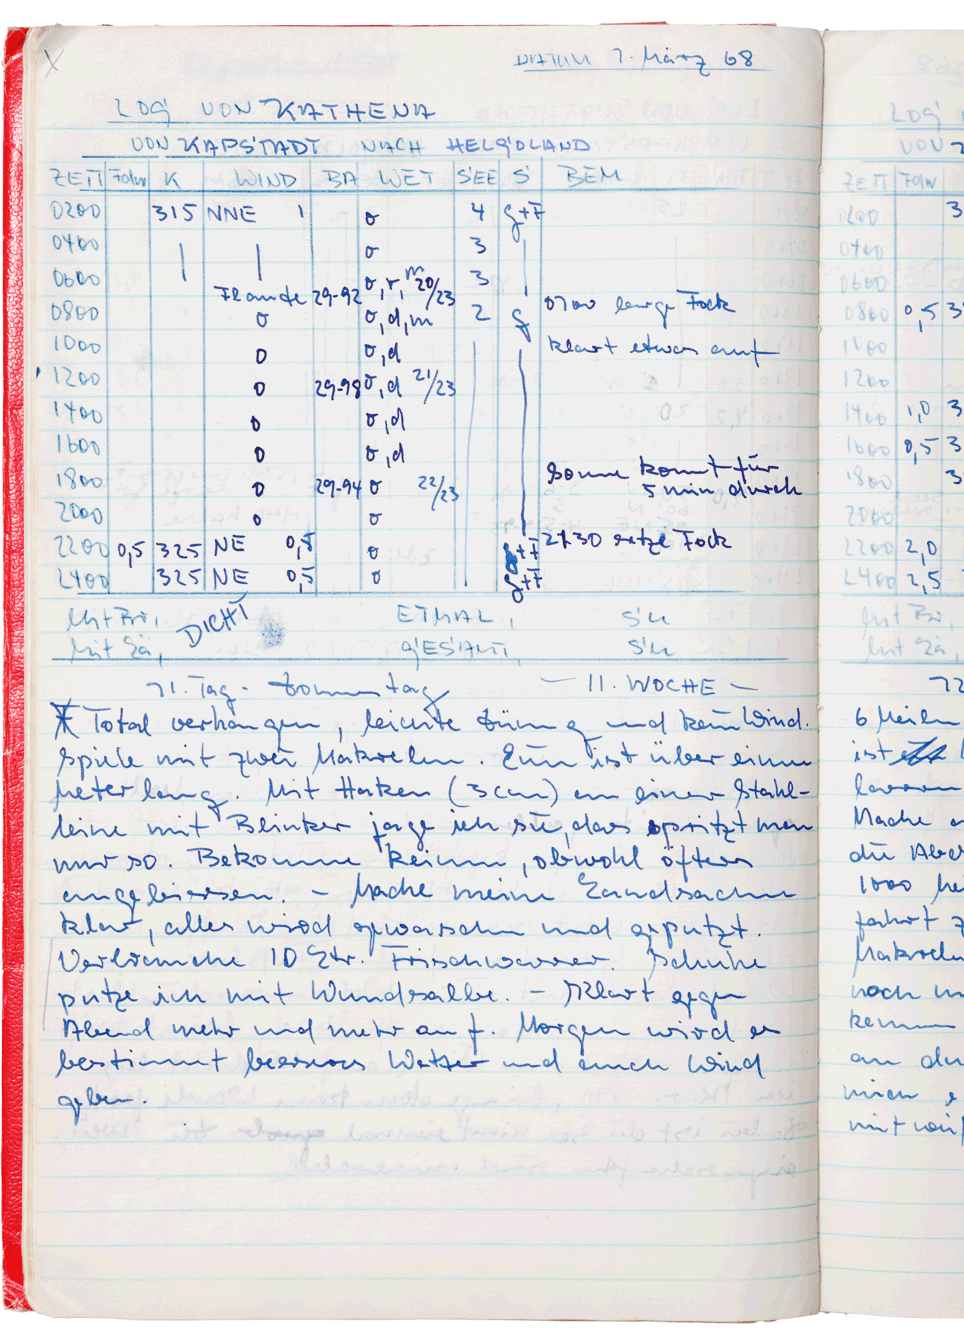 DATUM 7. März 68
LOG VON KATHENA
VON KAPSTADT NACH HELGOLAND
ZEIT Fahr K WIND BA WET SEE S BEM
0200 315 NNE 1 o 4 g+F
0400 o 3
0600 o, r, m 20/23 3
Flaute 29-92 0700 berge Fock
0800 o o,d,m 2 g
1000 o o,d klart etwas auf
1200 o 29-98 o,d 21/23
1400 o o,d
1600 o o,d
1800 o 29-94 o 22/23 Sonne kommt für
5 min durch
2000 o o
2200 0,5 325 NE 0,5 o g+F 2130 setze Fock
2400 325 NE 0,5 o g+F
Mit Br, DICHT ETMAL, SM
Mit Lä, GESAMT, SM
71. Tag - Sonntag - 11. WOCHE -
Total verhangen, leichte Dünung und kein Wind.
Spiele mit zwei Makrelen. Eine ist über einen
Meter lang. Mit Haken (3cm) an einer Stahl-
leine mit Blinker jage ich sie, das spritzt man
nur so. Bekomme keinen, obwohl öfters
angebissen. - Mache meine Landsachen
klar, alles wird gewaschen und geputzt.
Verbrauche 10 Ltr. Frischwasser. Schuhe
putze ich mit Wundsalbe. - Klart gegen
Abend mehr und mehr auf. Morgen wird es
bestimmt besseres Wetter und auch Wind
geben.
LOG
VON
ZEIT Fahr
0200 3
0400
0600
0800 0,5 3
1000
1200
1400 1,0 3
1600 0,5 3
1800 3
2000
2200 2,0
2400 2,5
Mit Br,
Mit Lä,
72
6 Meilen
ist
Mache
die
1000
fahrt
Makrelen
noch
an
mich